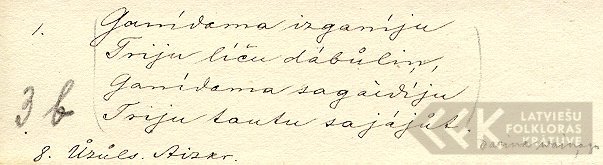 1. Ganīdama izganīju
Triju līču dābūliņ,
3b
Ganīdama sagàidīju
Triju tautu sajájūt.
8. Ūzūls. Aizkr.
LATVIEŠU
FOLKLORAS
KRĀTUVE